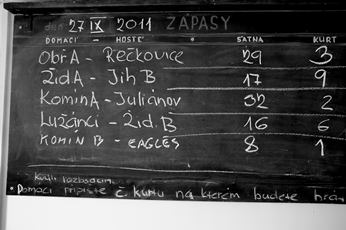 dne 27 IX 2011 ZÁPASY
DOMÁCÍ - HOSTÉ • ŠATNA KURT
Obř A - Řečkovice 29 3
Žid A - Jih B 17 9
Komín A - Juliánov 32 2
Lužánci - Žid. B 16 6
KOMÍN B - EAGLES 8 1
Kurty rozbsdcím.
• Domácí připište č. kurtu na kterém budete hrát